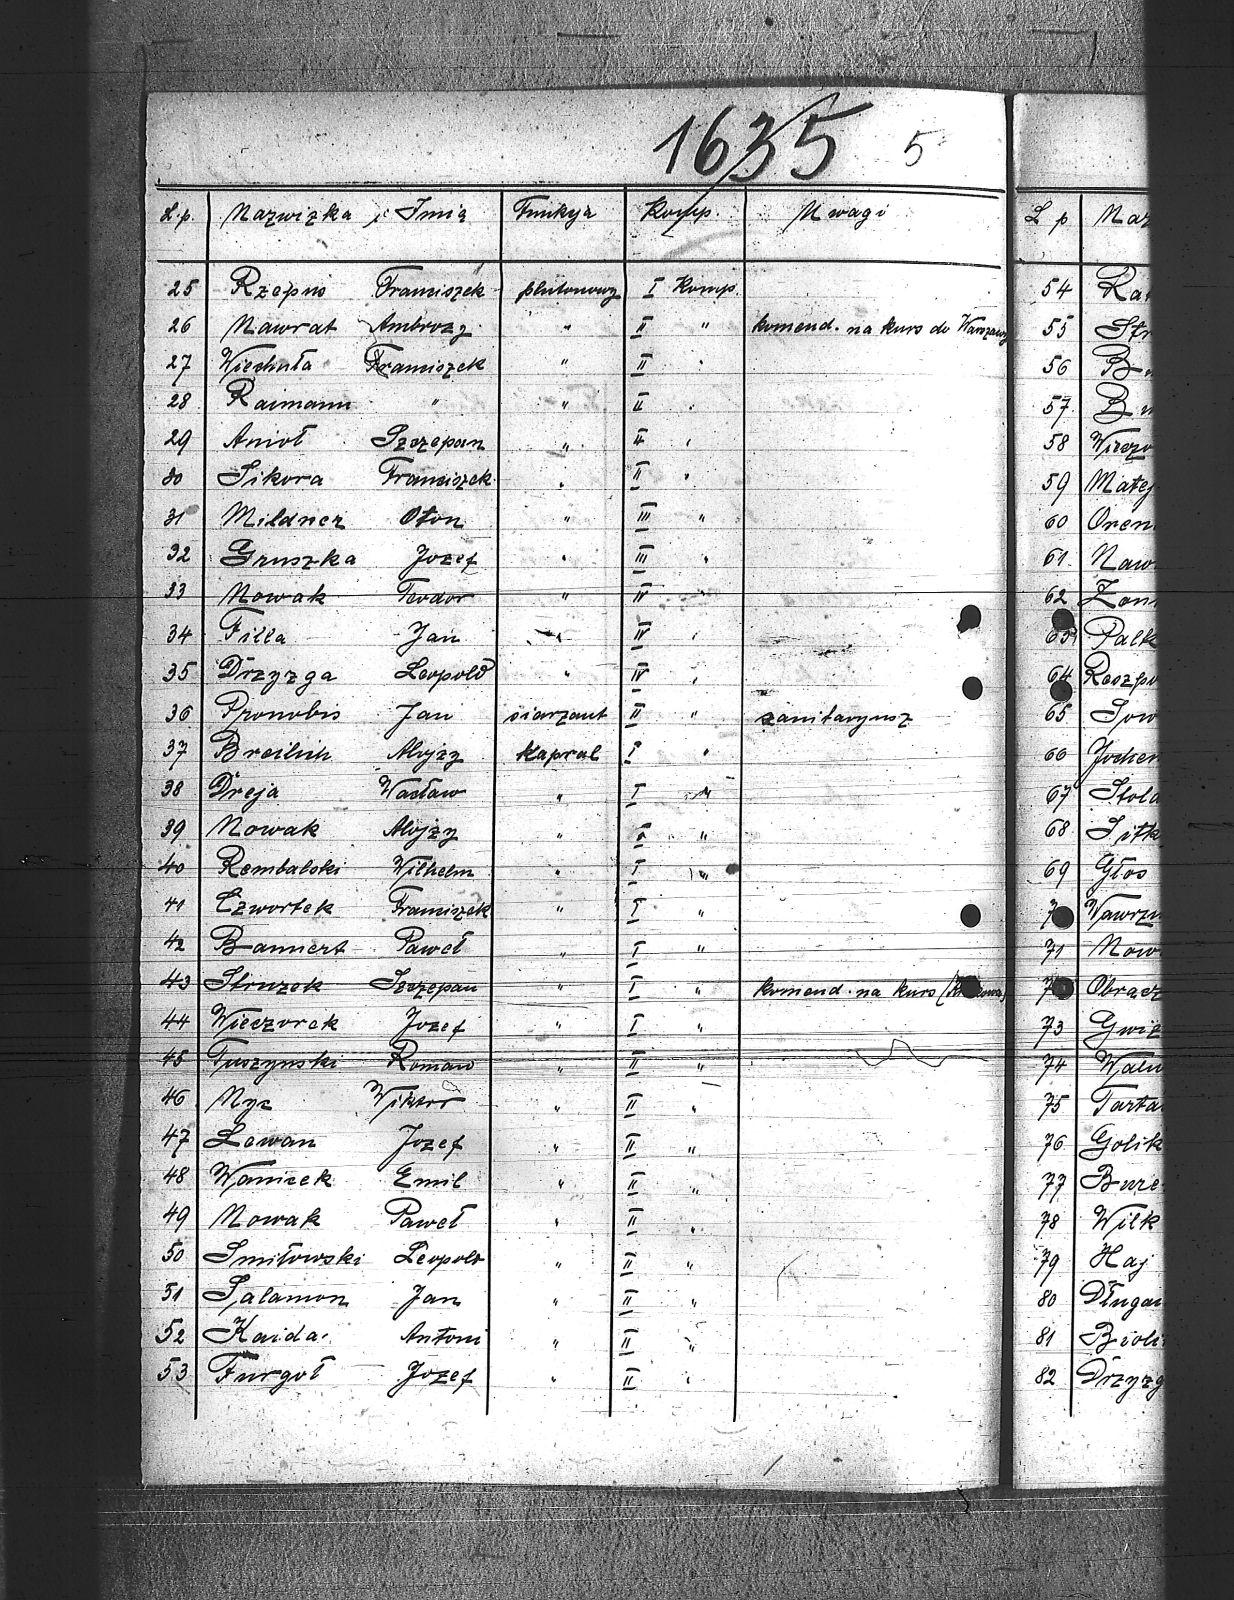 1635 5
L.p. Nazwizka i Imią Funkyja Komp. Uwagi
25 Rzepus Franciszek plutonowy I Komp.
26 Nawrat Ambrozy " II " komend. na kurs do Warszawy
27 Wiechuła Franciszek " II "
28 Raimann " " II "
29 Anioł Szczepan " II "
30 Sikora Franciszek " II "
31 Mildner Oton " III "
32 Gruszka Jozef " III "
33 Nowak Teodor " IV "
34 Filla Jan " IV "
35 Drzyzga Leopold " IV "
36 Pronobis Jan siarzant II " sanitaryusz
37 Breilich Alojzy Kapral I "
38 Dreja Wacław " I "
39 Nowak Alojzy " I "
40 Rembalski Wilhelm " I "
41 Czwortek Franciszek " I "
42 Bannert Paweł " I "
43 Struzek Szczepan " I " komend. na kurs
44 Wieczorek Jozef " I "
45 Tuszynski Roman " II "
46 Nyc Wiktor " II "
47 Lewan Jozef " II "
48 Waniczek Emil " II "
49 Nowak Paweł " II "
50 Smiłowski Leopold " II "
51 Salamon Jan " II "
52 Kaida Antoni " II "
53 Furgoł Jozef " II "
L p Naz
54 Ra
55 Str
56 B
57 B
58 Wieczo
59 Matej
60 Oren
61 Naw
62 Zon
63 Palk
64 Roszpo
65 Sow
66 Jochem
67 Stola
68 Sitk
69 Głos
7 Wawrzy
71 Now
7 Obrącz
73 Gwiz
74 Walu
75 Tarta
76 Golik
77 Burc
78 Wilk
79 Haj
80 Długa
81 Bioli
82 Drzyzg